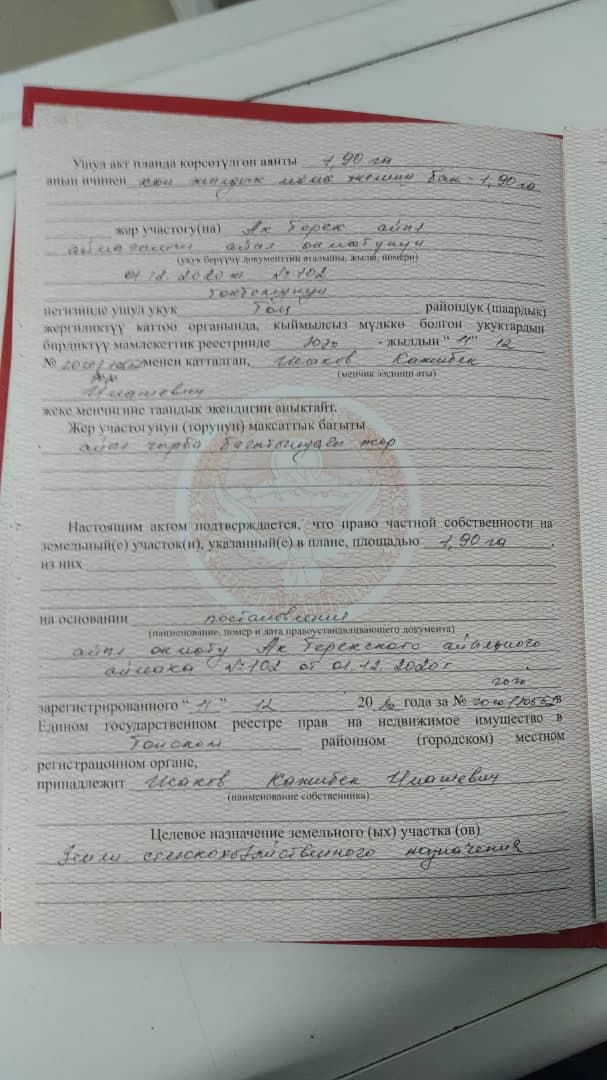 Ушул акт планда көрсөтүлгөн аянты 1,90 га
анын ичинен көп жылдык мөмө жемиш бак - 1,90 га
жер участогу(на) Ак Терек айыл
аймагынын айыл окмотунун
(укук берүүчү документтин аталышы, жылы, номери)
01.12.2020 ж №102
токтомунун
негизинде ушул укук Тоң райондук (шаардык)
жергиликтүү каттоо органында, кыймылсыз мүлккө болгон укуктардын
бирдиктүү мамлекеттик реестринде 2020 - жылдын " 11 " 12
№ менен катталган, Исаков Кажибек
(менчик ээсинин аты)
Имашевич
жеке менчигине таандык экендигин аныктайт.
Жер участогунун (торунун) максаттык багыты
айыл чарба багытындагы жер
Настоящим актом подтверждается, что право частной собственности на
земельный(е) участок(и), указанный(е) в плане, площадью 1,90 га,
из них
на основании постановления
(наименование, номер и дата правоустанавливающего документа)
айыл окмоту Ак Терекского айыльного
аймака №102 от 01.12.2020 г
зарегистрированного " 11 " 12 2020 года за № в
Едином государственном реестре прав на недвижимое имущество в
Тонском районном (городском) местном
регистрационном органе,
принадлежит Исаков Кажибек Имашевич
(наименование собственника)
Целевое назначение земельного (ых) участка (ов)
Земли сельскохозяйственного назначения